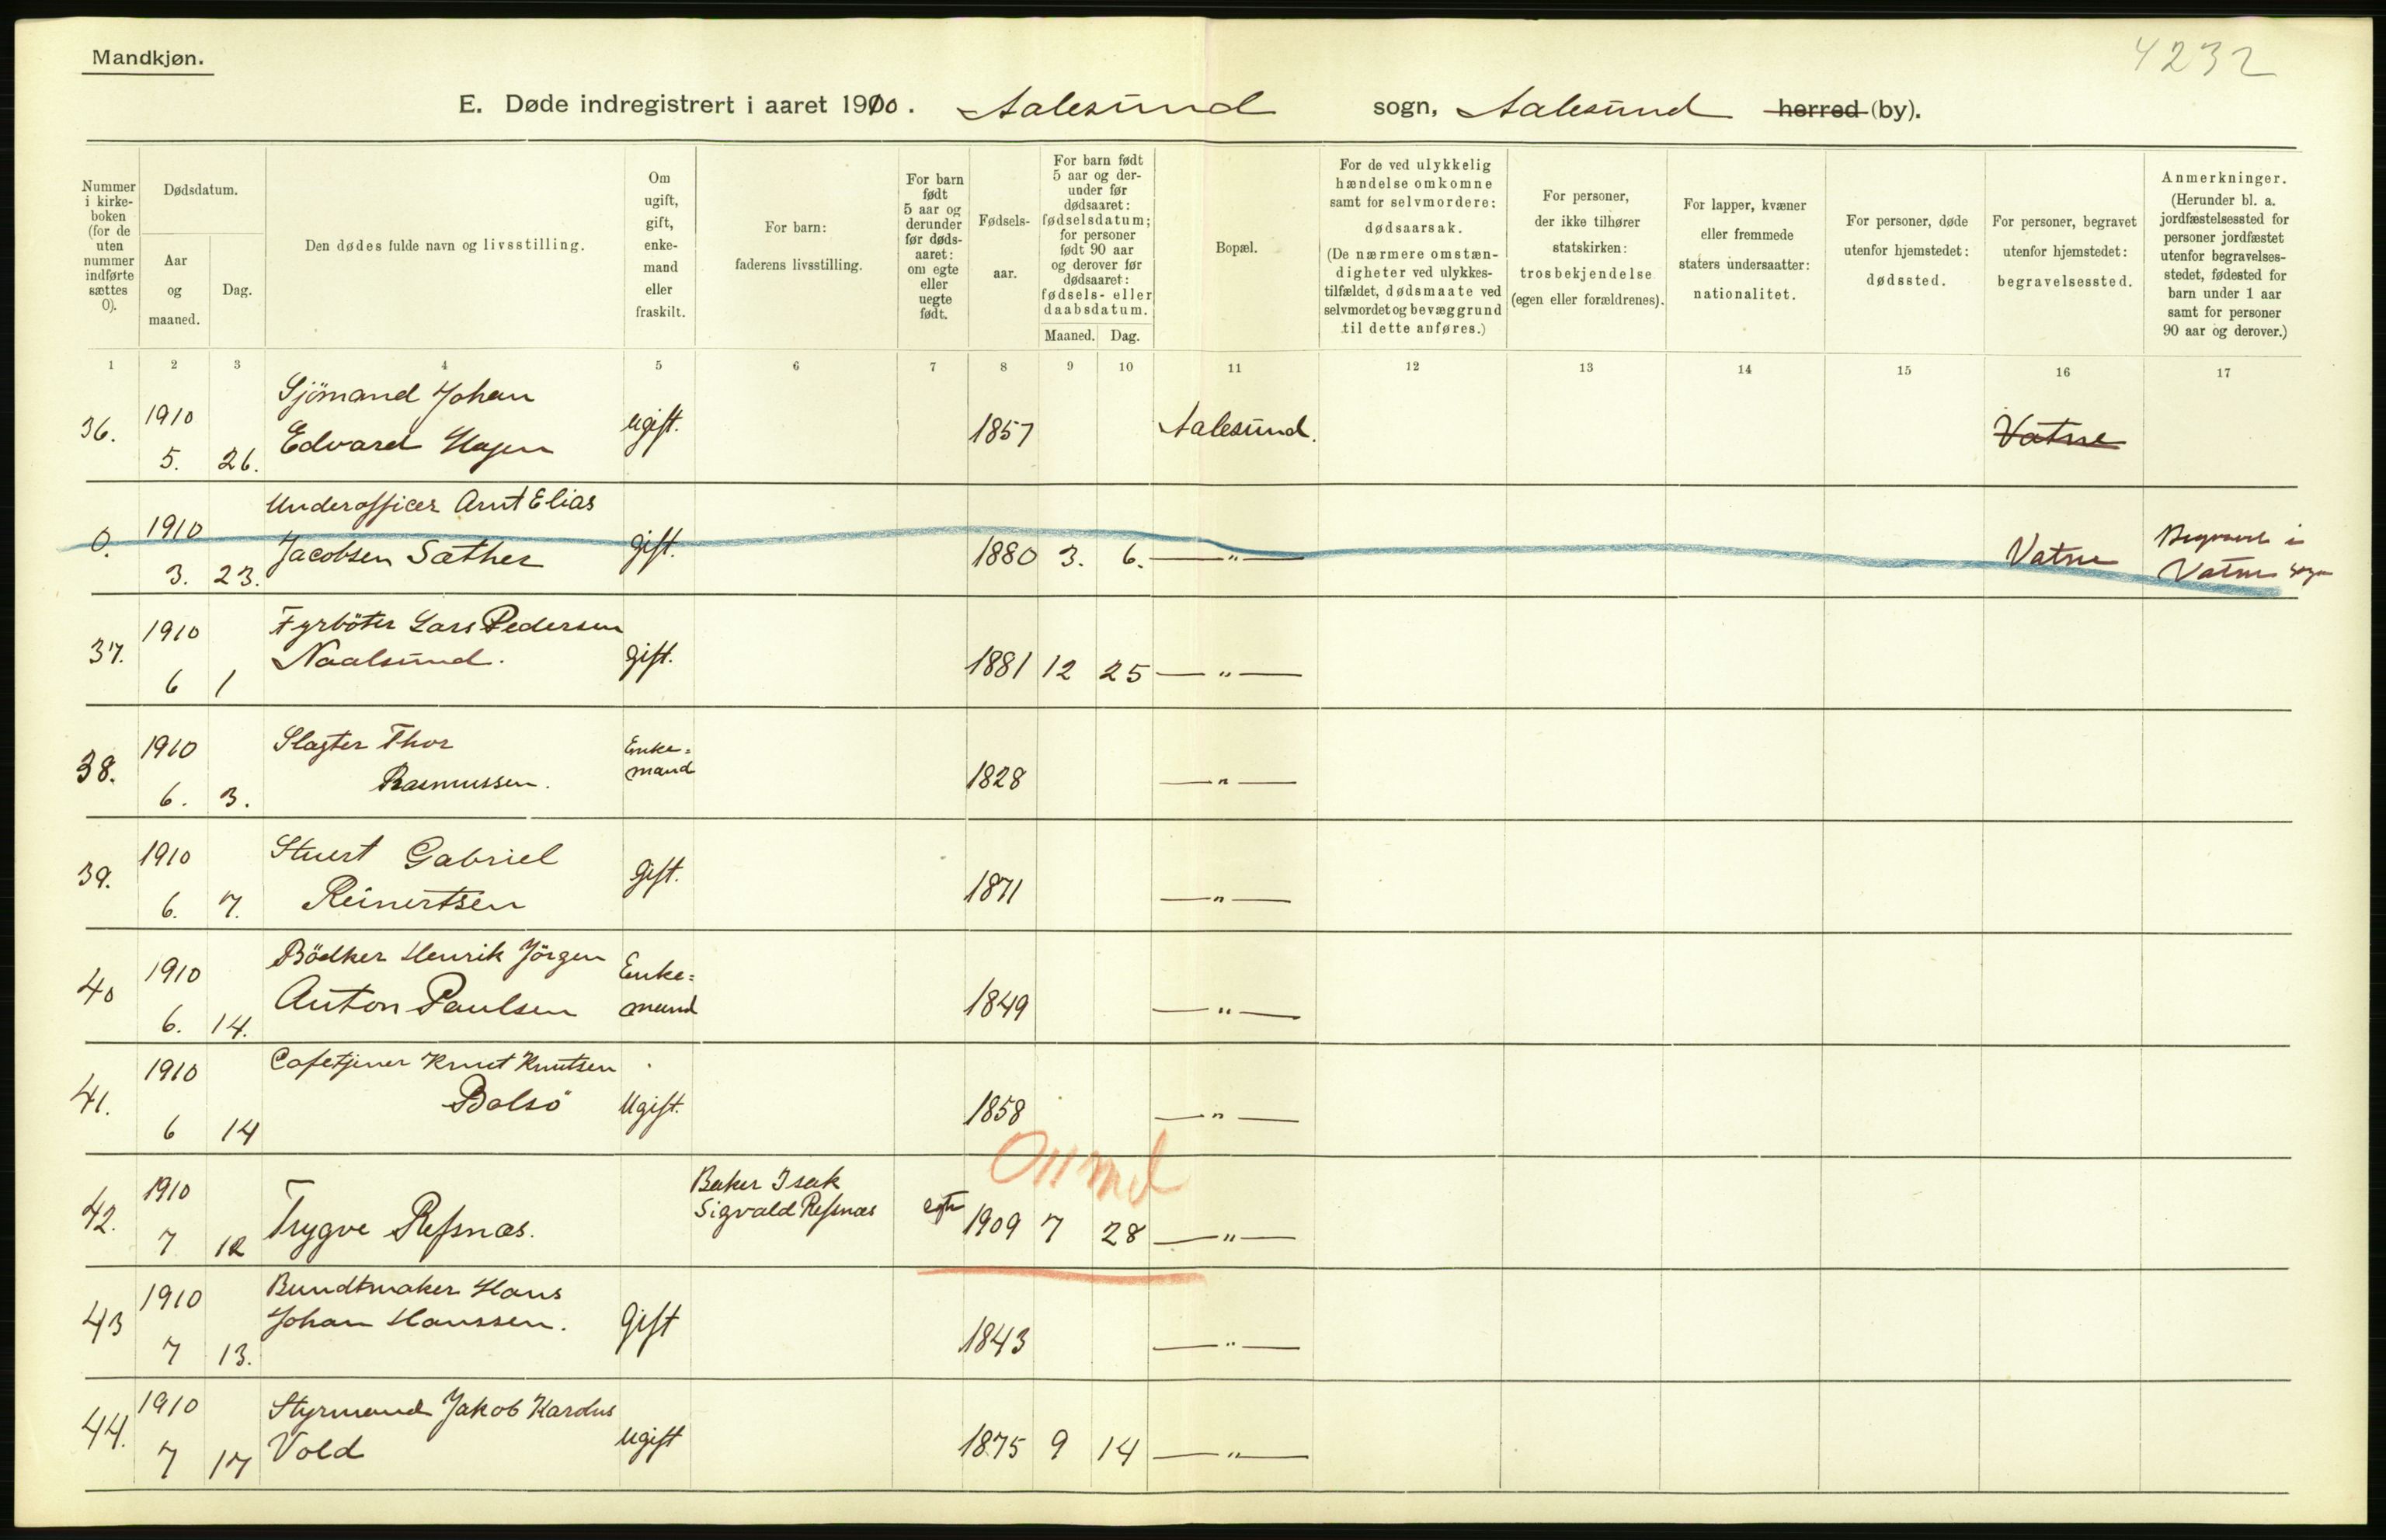 Mandkjøn.
4232
E. Døde indregistrert i aaret 1910. Aalesund sogn, Aalesund herred (by).
Nummer i kirke-boken (for de uten nummer indførte sættes 0).
Dødsdatum.
Aar og maaned.
Dag.
Den dødes fulde navn og livsstilling.
Om ugift, gift, enke-mand eller fraskilt.
For barn: faderens livsstilling.
For barn født 5 aar og derunder før døds-aaret: om egte eller uegte født.
Fødsels-aar.
For barn født 5 aar og der-under før dødsaaret: fødselsdatum; for personer født 90 aar og derover før dødsaaret: fødsels- eller daabsdatum.
Maaned. Dag.
Bopæl.
For de ved ulykkelig hændelse omkomne samt for selvmordere: dødsaarsak. (De nærmere omstæn-digheter ved ulykkes-tilfældet, dødsmaate ved selvmordet og bevæggrund til dette anføres.)
For personer, der ikke tilhører statskirken: trosbekjendelse (egen eller forældrenes).
For lapper, kvæner eller fremmede staters undersaatter: nationalitet.
For personer, døde utenfor hjemstedet: dødssted.
For personer, begravet utenfor hjemstedet: begravelsessted.
Anmerkninger. (Herunder bl. a. jordfæstelsessted for personer jordfæstet utenfor begravelses-stedet, fødested for barn under 1 aar samt for personer 90 aar og derover.)
1 2 3 4 5 6 7 8 9 10 11 12 13 14 15 16 17
36. 1910 5. 26. Sjömand Johan Edvard Hagen ugift. 1857 Aalesund. Vatne
0. 1910 3. 23. Underofficer Arnt Elias Jacobsen Sæther gift. 1880 3. 6. —"— Vatne Begravet i Vatne sogn
37. 1910 6 1 Fyrböter Lars Pedersen Naalsund. gift. 1881 12 25 —"—
38. 1910 6. 3. Slagter Thor Rasmussen. Enke=mand 1828 —"—
39. 1910 6. 7. Stuert Gabriel Reinertsen gift. 1871 —"—
40 1910 6. 14. Bödker Henrik Jörgen Anton Paulsen Enke=mand 1849 —"—
41. 1910 6 14 Cafetjener Knut Knutsen Bolsö Ugift. 1858 —"—
0 11 md
42. 1910 7 12 Trygve Refsnæs. Baker Isak Sigvald Refsnæs egte 1909 7 28 —"—
43 1910 7 13. Bundtmaker Hans Johan Hanssen. Gift 1843 —"—
44. 1910 7 17 Styrmand Jakob Kardus Vold ugift 1875 9 14 —"—